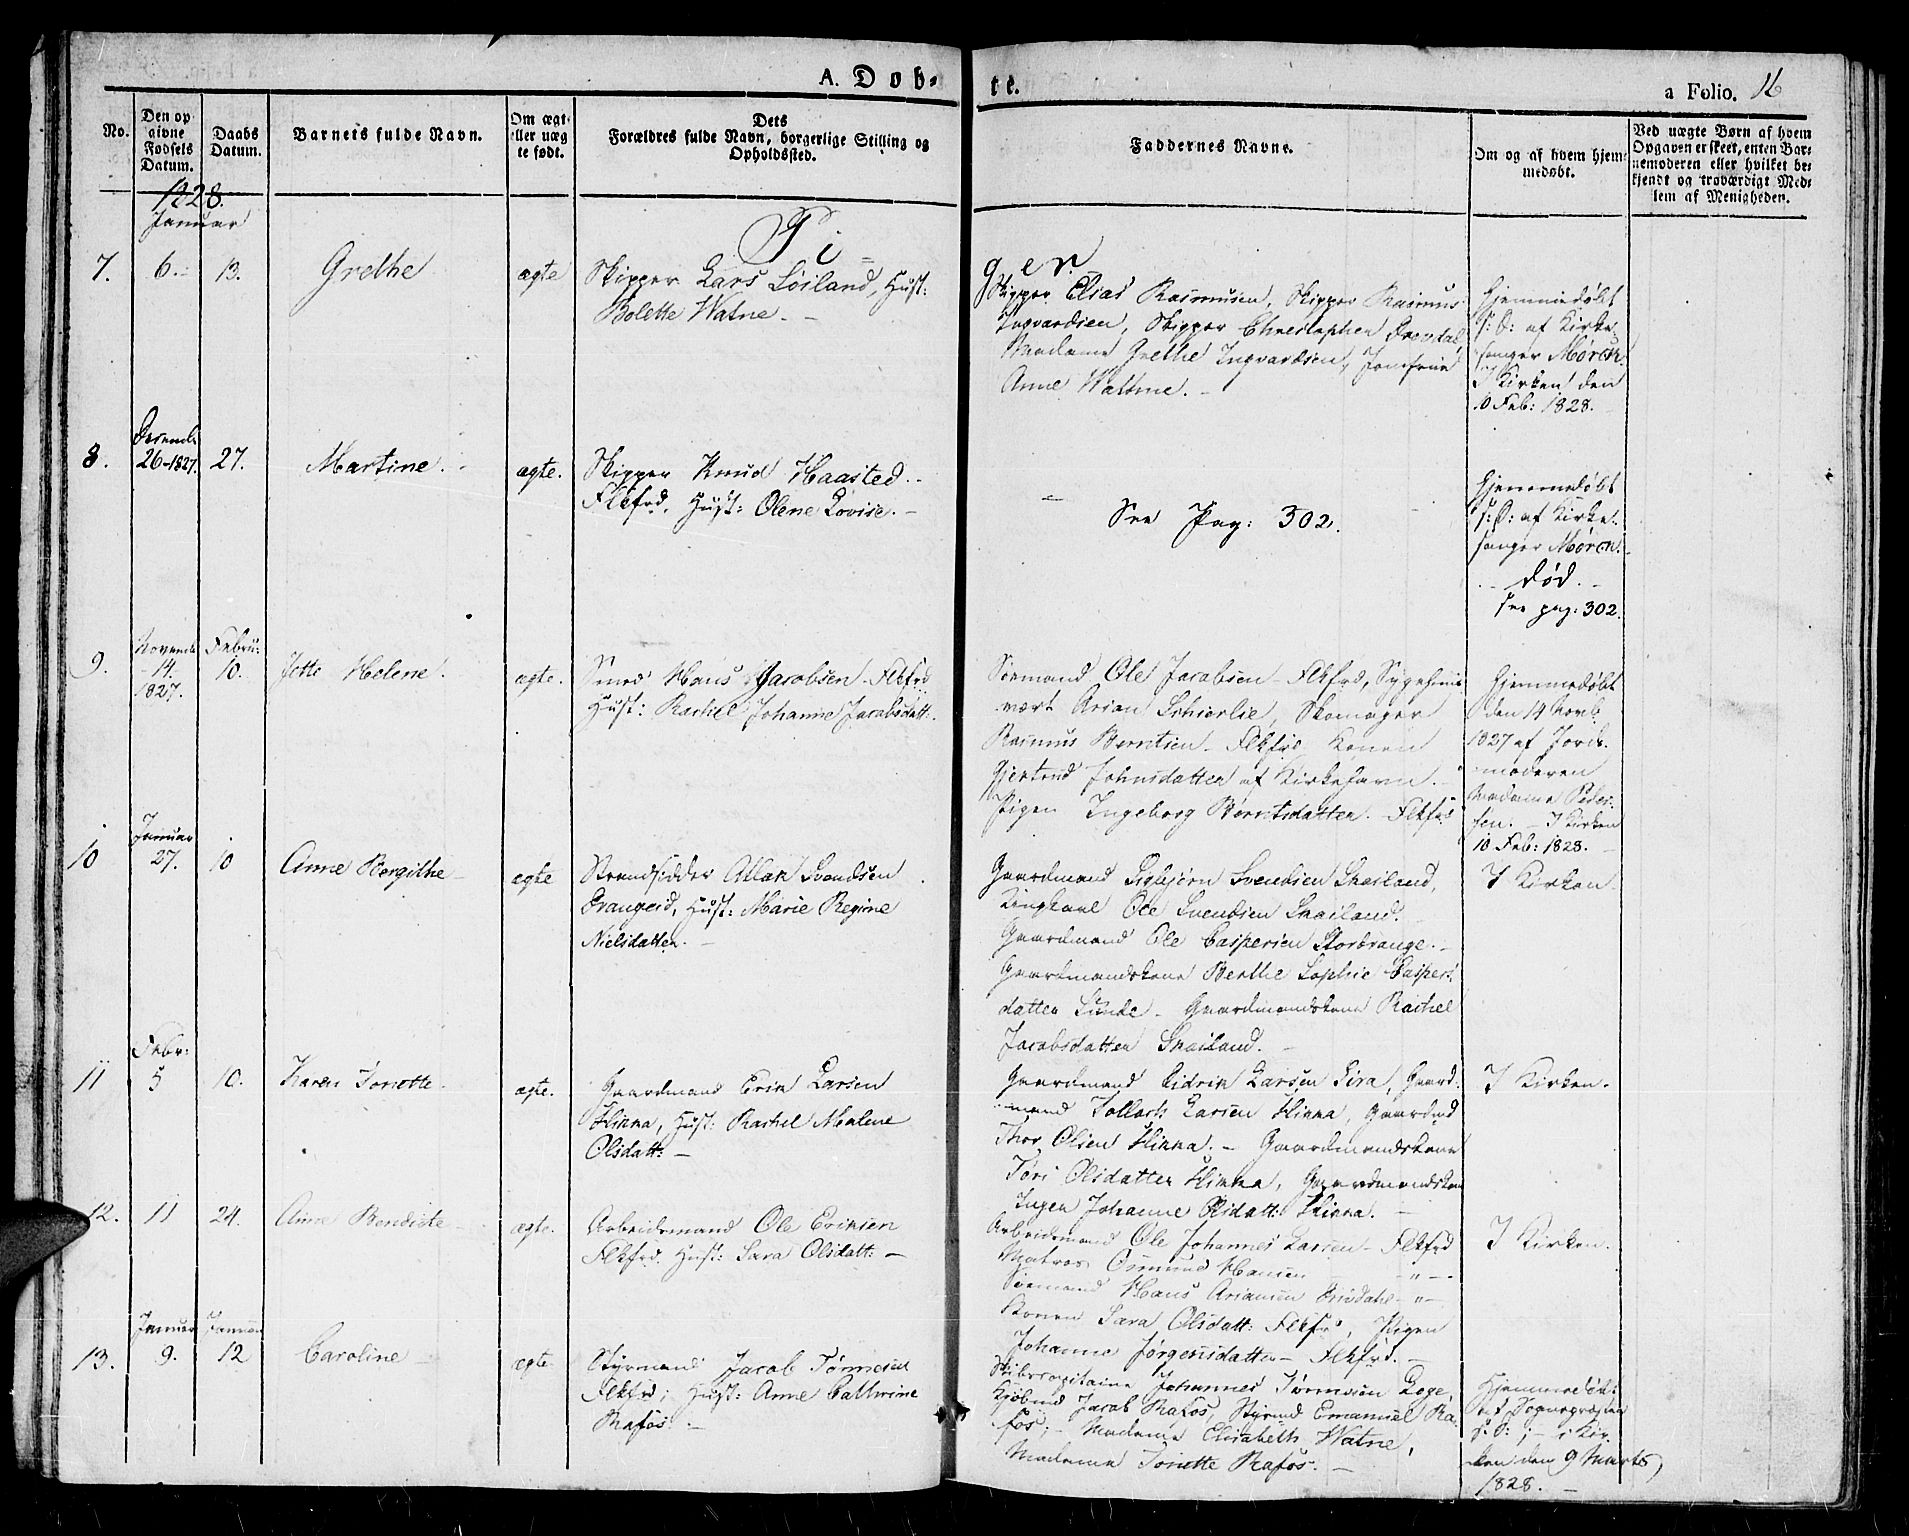 A. Døb-
te.
a Folio. 16
No.
Den op
givne
Fødsels
Datum.
Daabs
Datum.
Barnets fulde Navn.
Om ægt
eller uæg
te født.
Dets
Forældres fulde Navn, borgerlige Stilling og
Opholdssted.
Faddernes Navne.
Om og af hvem hjem-
medøbt.
Ved uægte Børn af hvem
Opgaven er skeet, enten Bar-
nemoderen eller hvilket be-
kjendt og troværdigt Med-
lem af Menigheden.
1828.
Januar
Pi
ger
7.
6.
13.
Grethe
ægte
Skipper Lars Løiland, Hust:
Bolette Watne. -
Skipper Elias Rasmusen, Skipper Rasmus
Ingvardsen, Skipper Christopher
Madame Grethe Ingvardsen, Jomfrue
Anne Wattne. -
Hjemmedøbt
s: D: af Kirke-
sanger Møren.
I Kirken den
10 Feb: 1828.
8.
Decemb:
26-1827.
27.
Martine.
ægte.
Skipper Knud Haasted.
Flkfrd. Hust: Olene Lovise. -
See Pag: 302.
Hjemmedøbt
s: D: af Kirke-
sanger Møren.
død. -
see pag: 302.
9.
Novemb
14.
1827.
Febru:
10.
Jette Helene.
ægte.
Smed Hans Jacobsen - Flkfrd
Hust: Rachel Johanne Jacobsdatt:
Søemand Ole Jacobsen - Flkfrd, Sygehuus
vært Arian Schierlie, Skomager
Rasmus Berntsen - Flkfrd Konen
Gjertrud Johnsdatter af Kirkehavn. -
Pigen Ingeborg Berntsdatter. Flkfrd
Hjemmedøbt
den 14 Novb.
1827 af Jorde-
moderen
Madame Peder-
sen. - I Kirken
10 Feb: 1828.
10
Januar
27.
10
Anne Bergithe
ægte
Strandsidder Atlak Svendsen
Drangeid, Hust: Marie Regine
Nielsdatter. -
Gaardmand Sigbjørn Svendsen Skailand,
Ungkarl Ole Svendsen Skailand.
Gaardmand Ole Caspersen Storbrange. -
Gaardmandskone Berthe Sophie Caspers
datter Sunde - Gaardmandskone Rachel
Jacobsdatter Skailand. -
I Kirken.
11
Febr:
5
10.
Karen Tonette.
ægte.
Gaardmand Erik Larsen
Hinna, Hust: Rachel Malene
Olsdatt: -
Gaardmand Didrik Larsen Sira, Gaard-
mand Tollach Larsen Hinna, Gaardmd
Thor Olsen Hinna. - Gaardmandskone
Tøri Olsdatter Hinna, Gaardmandskone
Inger Johanne Olsdatt: Hinna. -
I Kirken.
12.
11
24.
Anne Bendicte
ægte.
Arbeidsmand Ole Eriksen
Flkfrd. Hust: Sara Olsdatt: -
Arbeidsmand Ole Johannes Larsen - Flkfrd
Matros Osmund Hansen - " -
Søemand Hans Ariansen - " -
Konen Sara Olsdatt: Flkfrd, Pigen
Johanne Jørgensdatter - Flkfrd. -
I Kirken.
13.
Januar
9.
Januar
12
Caroline
ægte
Styrmand Jacob Tønnesen
Flkfrd; Hust: Anne Cathrine
Rafos. -
Skibscapitaine Johannes Tønnesen Lege,
Kjøbmd Jacob Rafos, Styrmd Emanuel Ra-
fos; - Madame Elisabeth Watne,
Madame Tonette Rafos. -
Hjemmedøbt
af Sognepræsten
s: D: ; - i Kir-
ken den 9 Marts,
1828. -